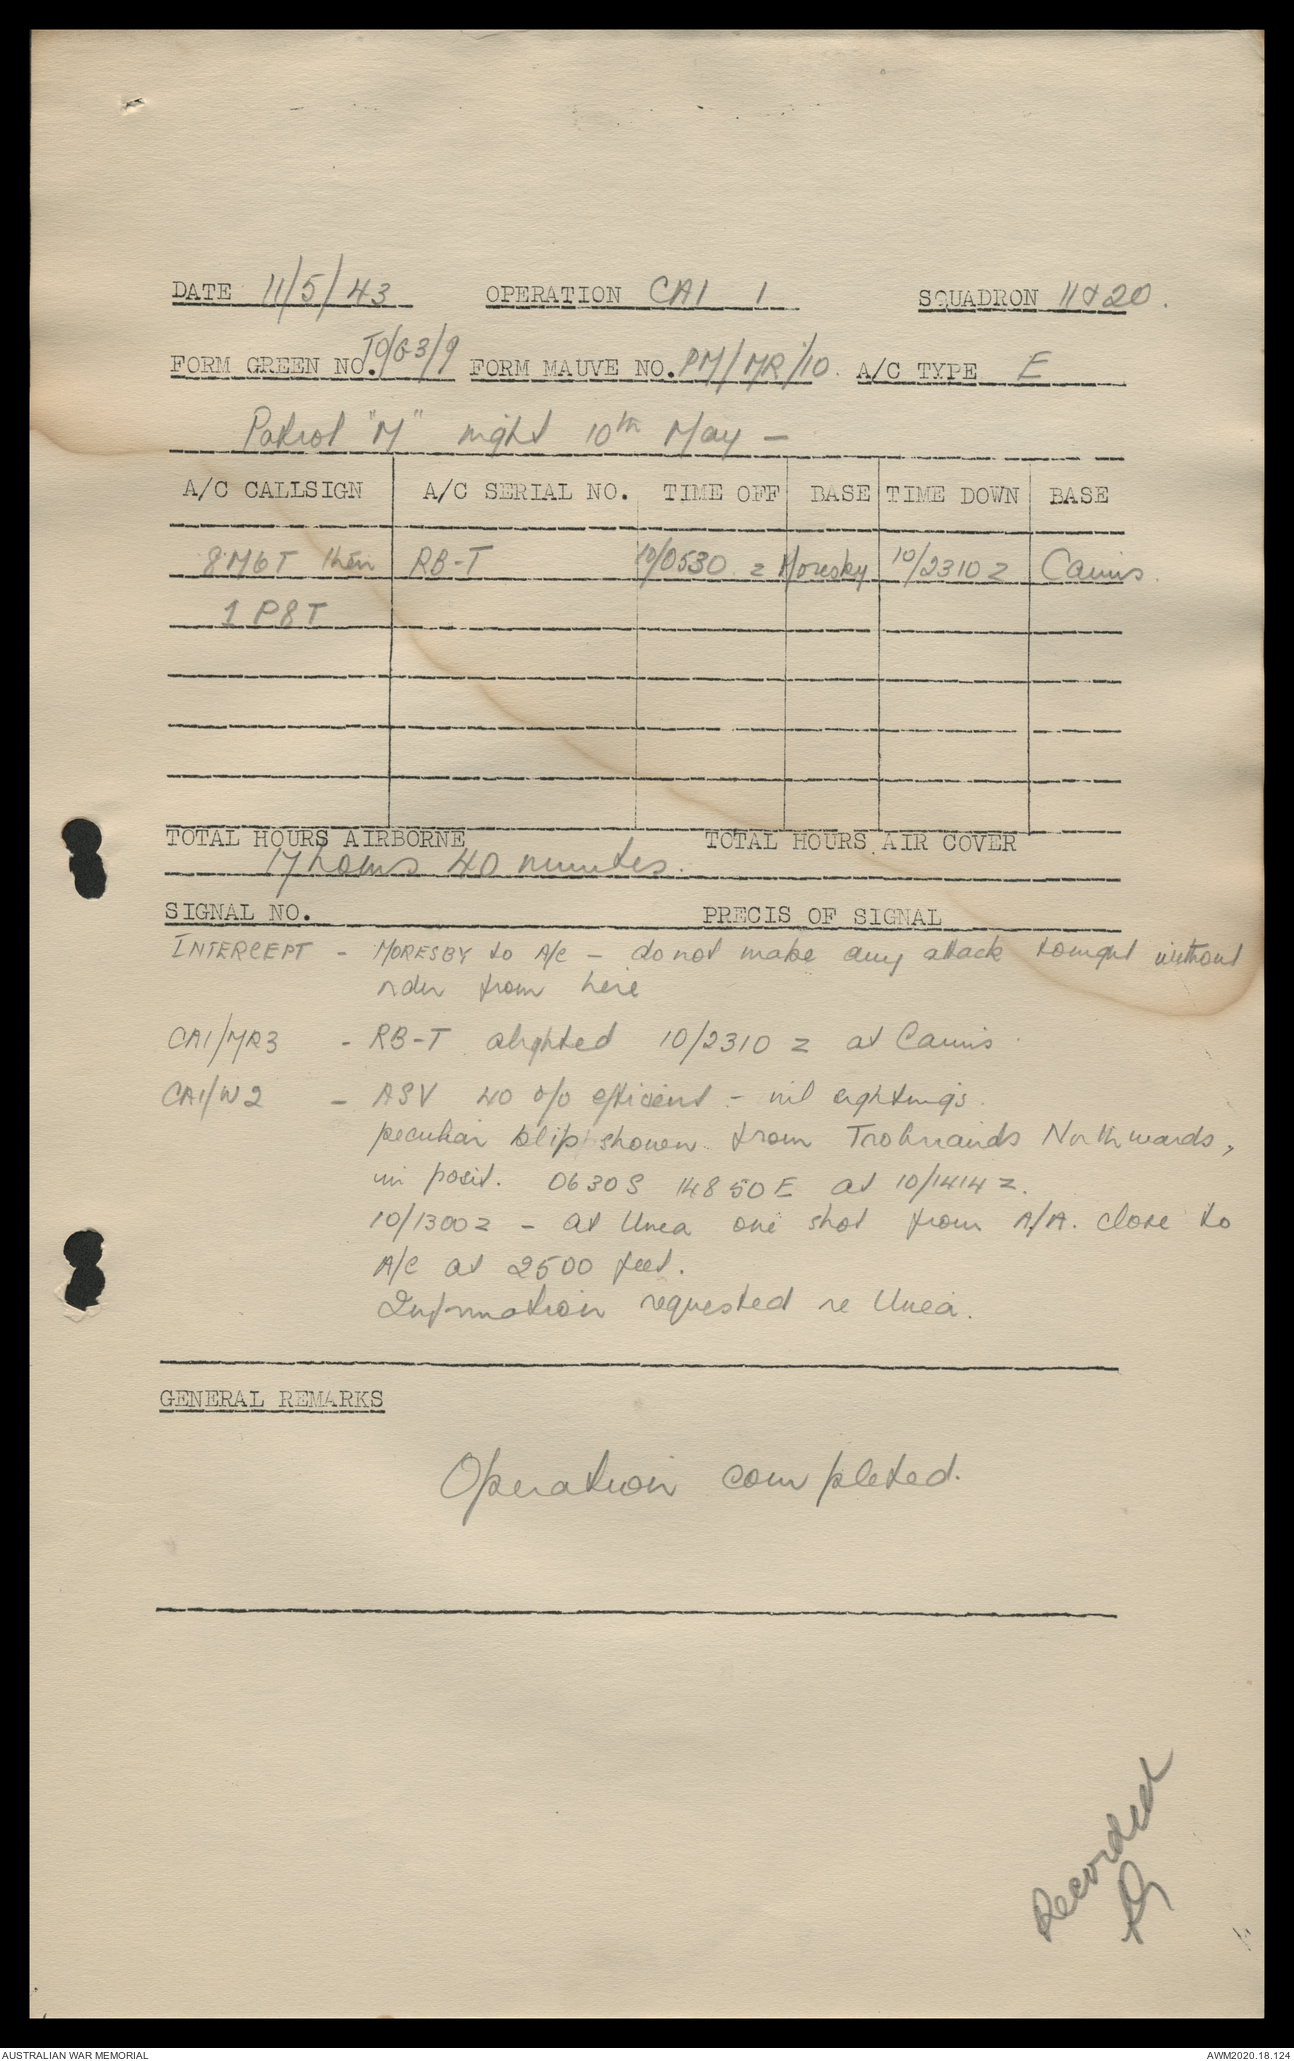 DATE 11/5/43 OPERATION CAI 1 SQUADRON 11 & 20.
FORM GREEN NO. TO/G3/9 FORM MAUVE NO. PM/MR/10. A/C TYPE E
Patrol "M" night 10th May -
A/C CALLSIGN A/C SERIAL NO. TIME OFF BASE TIME DOWN BASE
8M6T then RB-T 10/0530 z Moresby 10/2310 z Cairns.
1P8T
TOTAL HOURS AIRBORNE TOTAL HOURS AIR COVER
17 hours 40 minutes.
SIGNAL NO. PRECIS OF SIGNAL
INTERCEPT - MORESBY to A/C - do not make any attack tonight without
order from here
CA1/MR3 - RB-T alighted 10/2310 z at Cairns.
CA1/W2 - ASV 40 o/o efficient - nil sightings.
peculiar blip shown from Trobriands Northwards,
in posit. 0630S 14850E at 10/1414 z.
10/1300z - at Unea one shot from A/A. close to
A/C at 2500 feet.
Information requested re Unea.
GENERAL REMARKS
Operation completed.
Recorded
AUSTRALIAN WAR MEMORIAL AWM2020.18.124